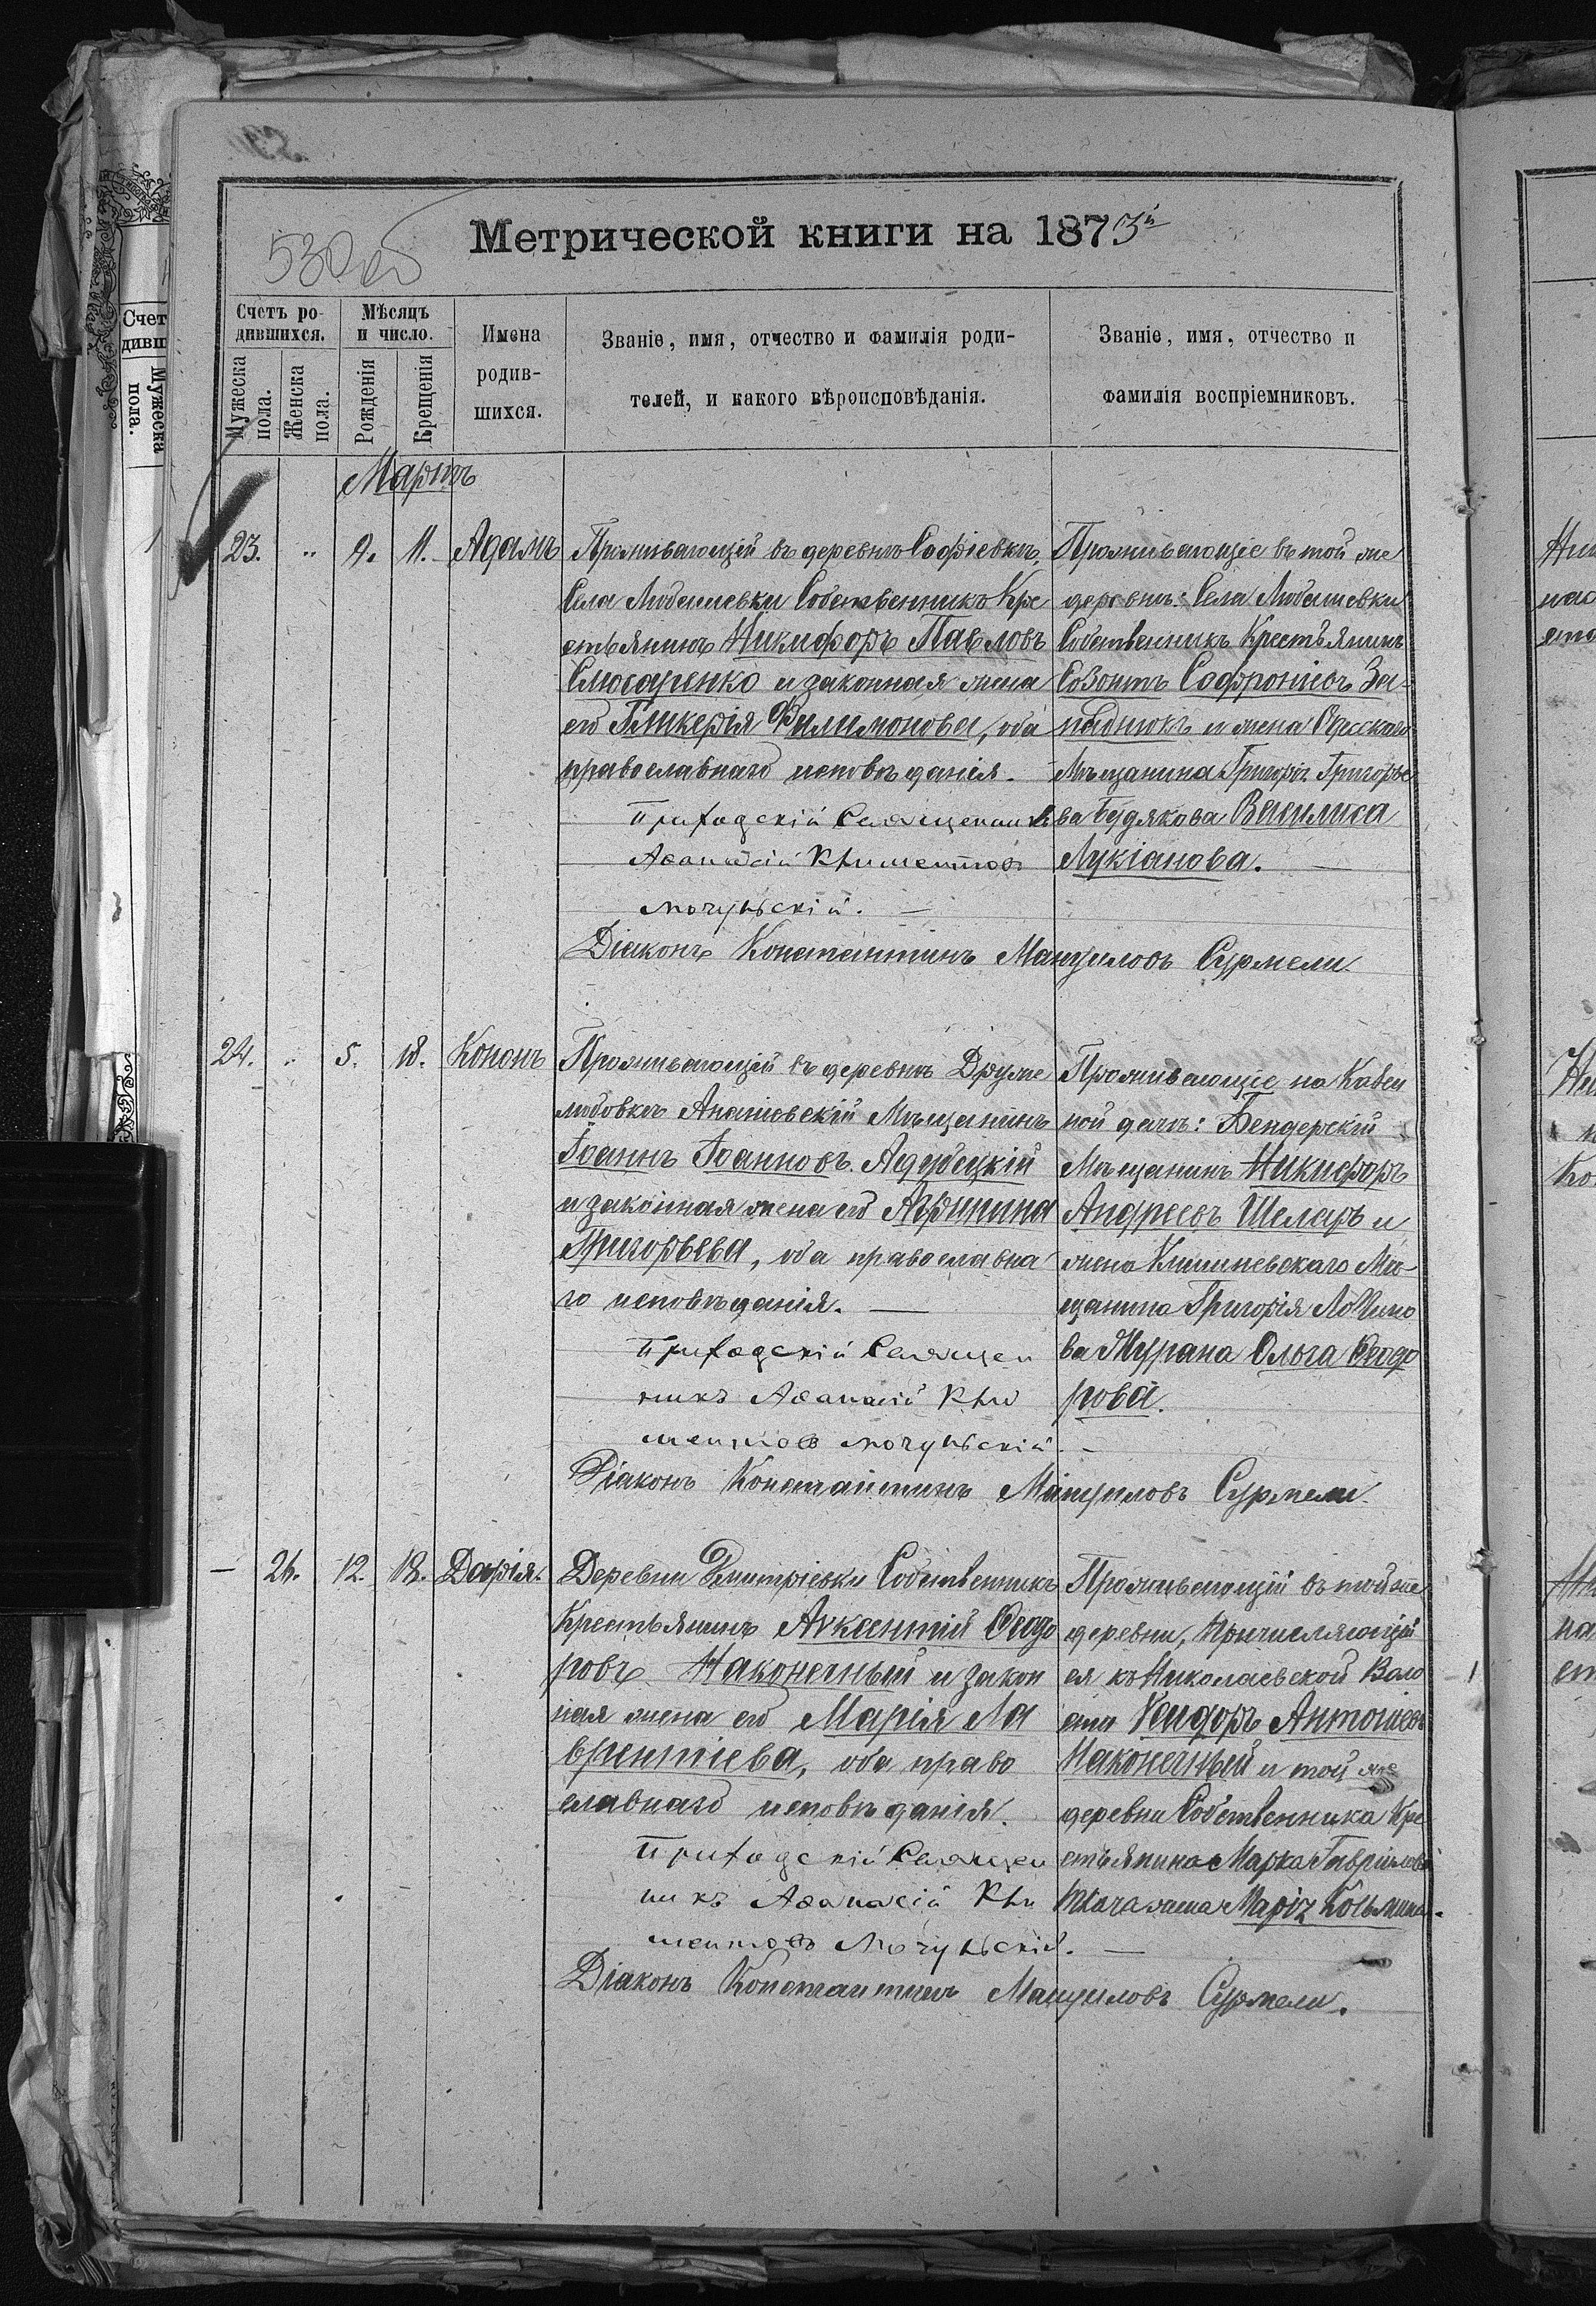 530 об
Метрической книги на 1873й
Счетъ ро-
дившихся.
Мужеска
пола.
Женска
пола.
Мѣсяцъ
и число.
Рожденія
Крещенія
Имена
родив-
шихся.
Званіе, имя, отчество и фамилія роди-
телей, и какого вѣроисповѣданія.
Званіе, имя, отчество и
фамилія воспріемниковъ.
Мартъ
23. " 9. 11. Адамъ
Проживающій въ деревнѣ Софіевкѣ,
Села Любашевки Собственникъ Кре
стьянинъ Никифоръ Павловъ
Слюсаренко и законная жена
его Гликерія Филимонова, оба
православнаго исповѣданія.
Приходскій Священникъ
Аѳанасій Климентов
Мочульскій.
Діаконъ Константинъ Мануиловъ Сурмели.
Проживающіе въ той же
деревнѣ: Села Любашевки
Собственникъ Крестьянинъ
Созонтъ Софроніевъ За-
паднюкъ и жена Одесскаго
Мѣщанина Григорія Григорье
ва Будякова Василиса
Лукіанова.
24. " 5. 18. Кононъ
Проживающій въ деревнѣ Друже
любовкѣ Ананіевскій Мѣщанинъ
Іоаннъ Іоанновъ
и законная жена его
Григорьева, оба православна
го исповѣданія.
Приходскій Священ
никъ Аѳанасій Кли
ментов Мочульскій.
Діаконъ Константинъ Мануиловъ Сурмели.
Проживающіе на Казен
ной дачѣ: Бендерскій
Мѣщанинъ Никифоръ
Андреевъ Шеларь и
жена Кишиневскаго Мѣ
щанина Григорія
ва Мурана Ольга Ѳеодо
рова.
— 26. 12. 18. Дарія.
Деревни Дмитріевки Собственникъ
Крестьянинъ Авксентій Ѳеодо
ровъ Наконечный и закон
ная жена его Марія Ла
врентіева, оба право
славнаго исповѣданія.
Приходскій Священ
никъ Аѳанасій Кли
ментов Мочульскій.
Діаконъ Константинъ Мануиловъ Сурмели.
Проживающій въ той же
деревни, причисляющій
ся къ Николаевской Воло
сти Исидоръ Антоніевъ
Наконечный и той же
деревни Собственника Кре
стьянина Марка Гавріилова
Ткача жена Марія Козьмина.